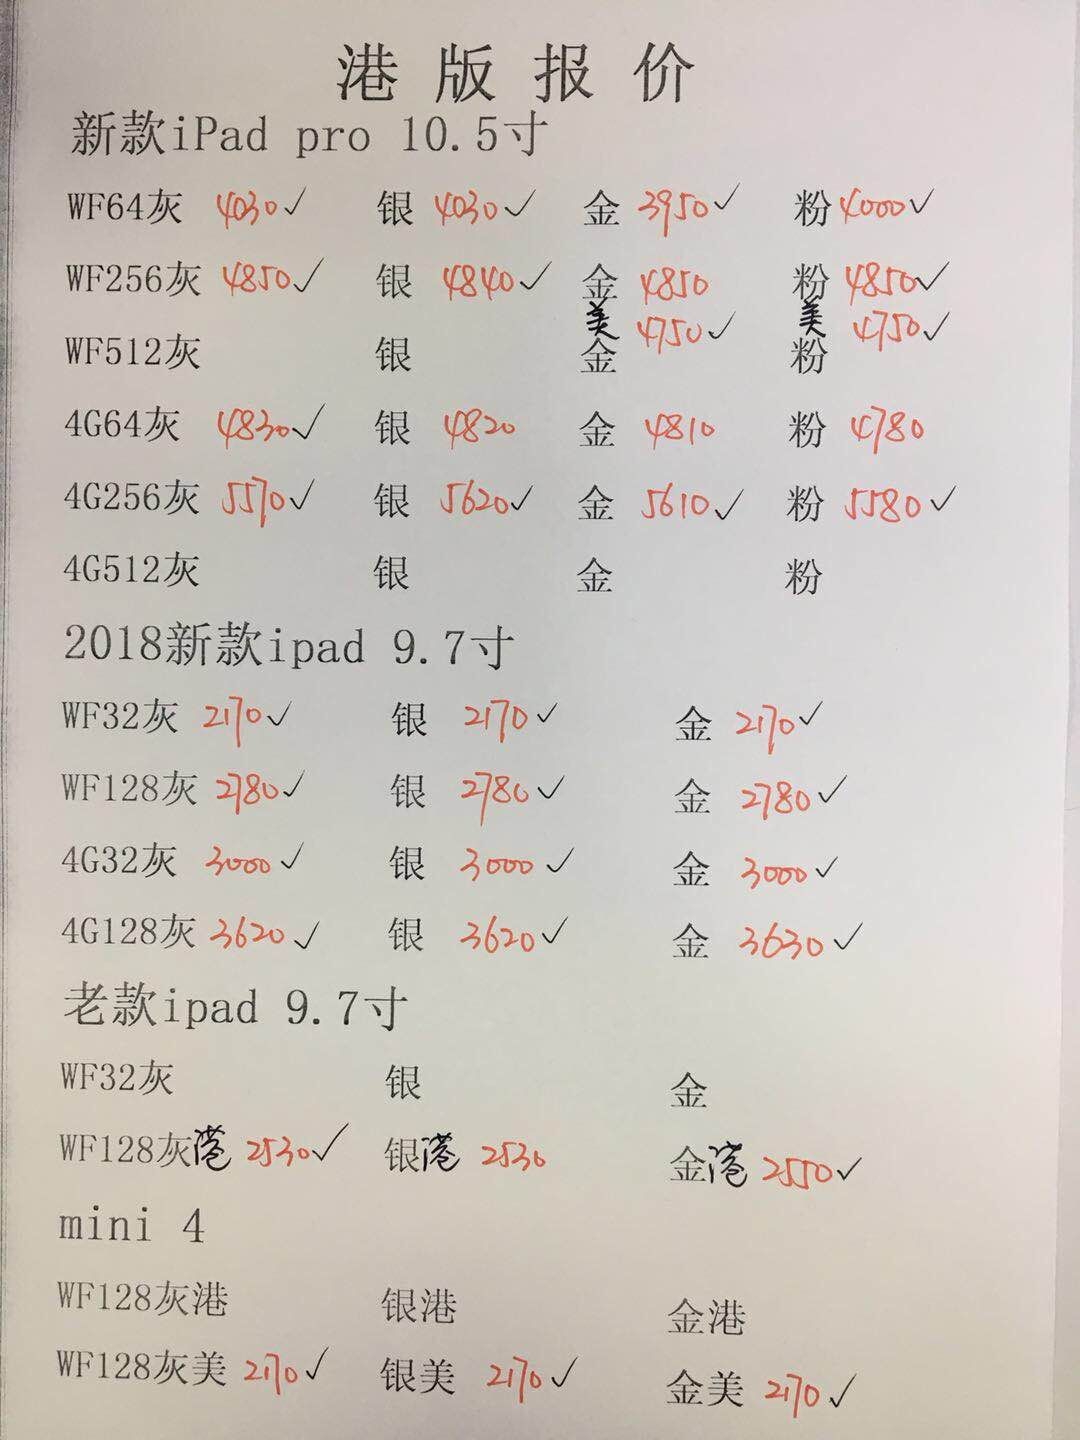 港版报价
新款iPad pro 10.5寸
WF64灰 4030✓ 银 4030✓ 金 3950✓ 粉 4000✓
WF256灰 4850✓ 银 4840✓ 金 4850 粉 4850✓
美 4750✓ 美 4750✓
WF512灰 银 金 粉
4G64灰 4830✓ 银 4820 金 4810 粉 4780
4G256灰 5570✓ 银 5620✓ 金 5610✓ 粉 5580✓
4G512灰 银 金 粉
2018新款ipad 9.7寸
WF32灰 2170✓ 银 2170✓ 金 2170✓
WF128灰 2780✓ 银 2780✓ 金 2780✓
4G32灰 3000✓ 银 3000✓ 金 3000✓
4G128灰 3620✓ 银 3620✓ 金 3630✓
老款ipad 9.7寸
WF32灰 银 金
WF128灰港 2530✓ 银港 2530 金港 2550✓
mini 4
WF128灰港 银港 金港
WF128灰美 2170✓ 银美 2170✓ 金美 2170✓